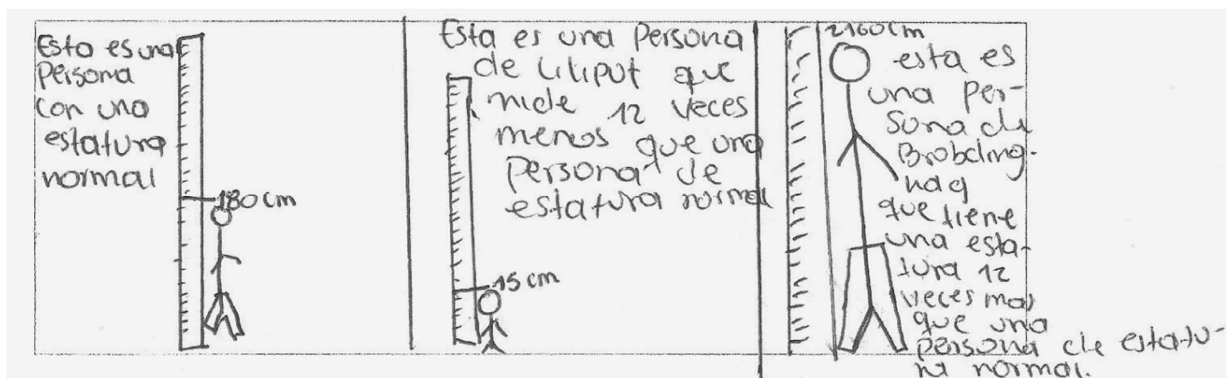 Esta es una
persona
con una
estatura
normal
180 cm
Esta es una Persona
de Liliput que
mide 12 veces
menos que una
Persona de
estatura normal
15 cm
2160 cm
esta es
una per-
sona de
Brobding-
nag
que tiene
una esta-
tura 12
veces mas
que una
persona de estatu-
ra normal.